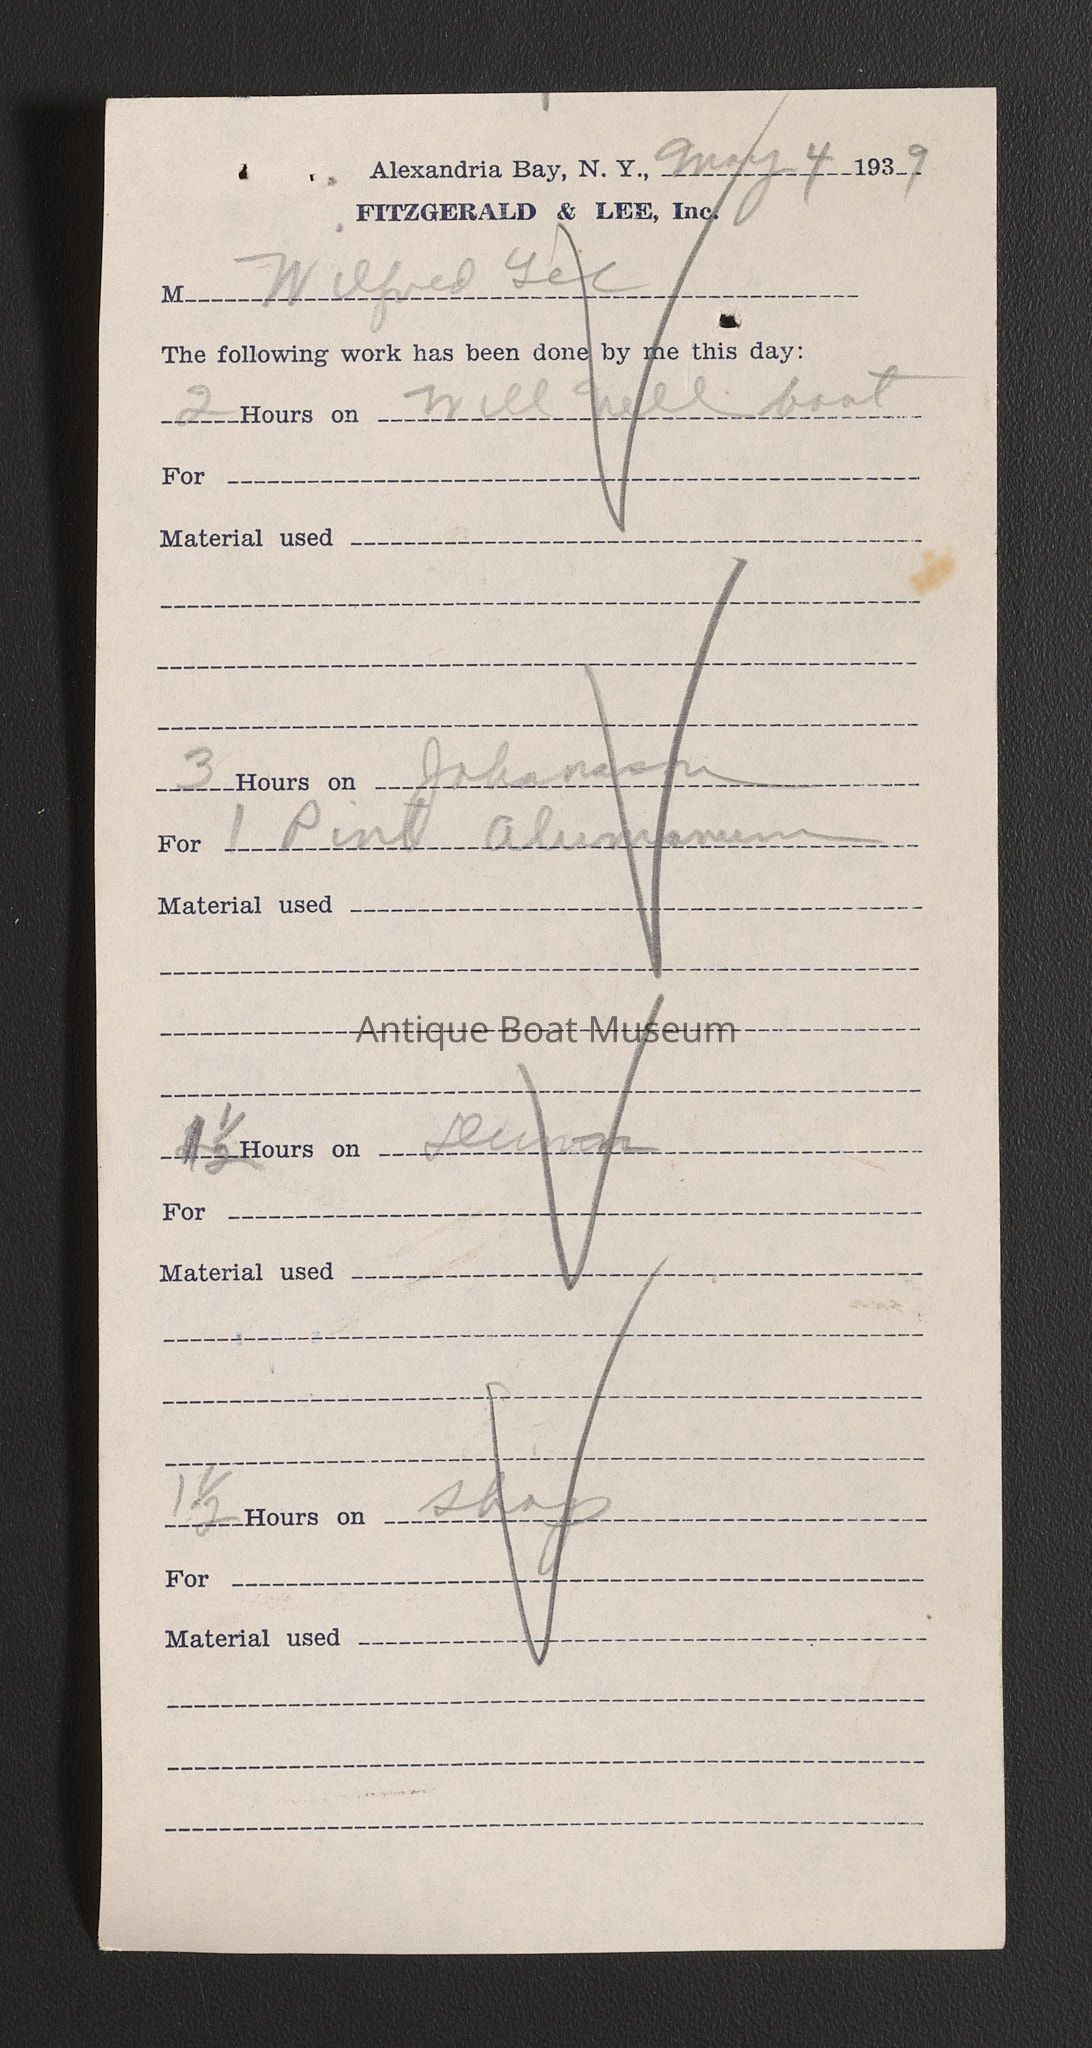 Alexandria Bay, N. Y., May 4 1939
FITZGERALD & LEE, Inc.
M Wilfred Lee
The following work has been done by me this day:
2 Hours on Will boat
For
Material used
3 Hours on Johanson
For 1 Pint Alumanum
Material used
Antique Boat Museum
1 1/2 Hours on
For
Material used
1 1/2 Hours on shop
For
Material used